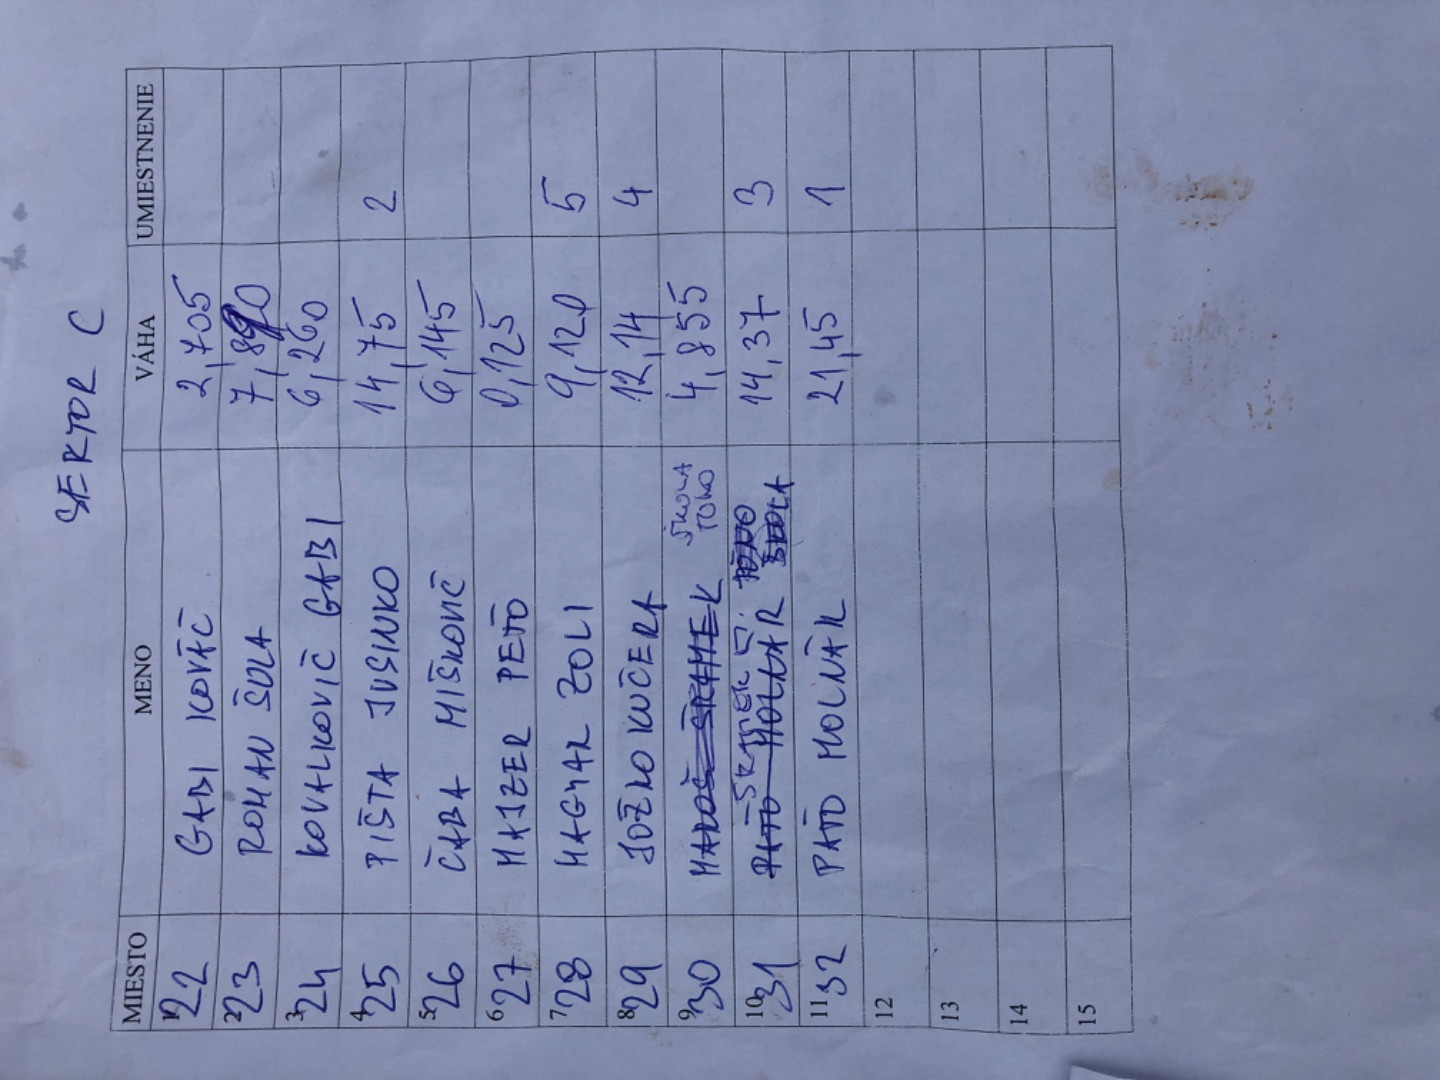 SEKTOR C
MIESTO MENO VÁHA UMIESTNENIE
1 22 GABI KOVÁČ 2,705
2 23 ROMAN ŠOLA 7,890
3 24 KOVALKOVIČ GABI 6,260
4 25 PIŠTA JUSINKO 14,75 2
5 26 ČABA MIŠKOVIČ 6,145
6 27 MAJZER PEŤO 0,125
7 28 MAGYAR ZOLI 9,120 5
8 29 JOŽKO KUČERA 12,14 4
9 30 MAROŠ SRAMEK ŠKOLA TONO 4,855
10 31 PAŤO MOLNAR SRAMEK TONO ŠKOLA 14,37 3
11 32 PAŤO MOLNÁR 21,45 1
12
13
14
15